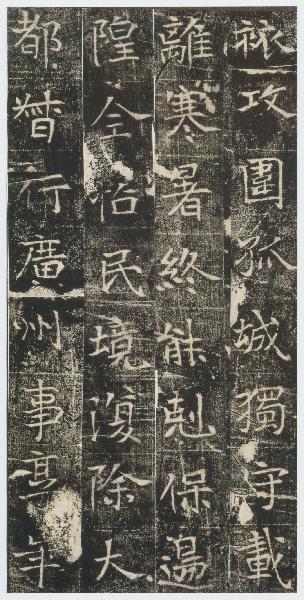 攻圍孤城獨守載
離寒暑終能剋保
隍全怗民境復除大
都督行廣州事享年